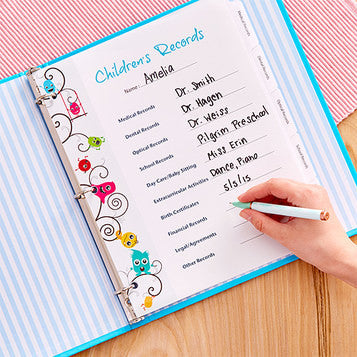 Children's Records
Name: Amelia
Medical Records Dr. Smith
Dental Records Dr. Hagen
Optical Records Dr. Weiss
School Records Pilgrim Preschool
Day Care/Baby Sitting Miss Erin
Extracurricular Activities Dance, Piano
Birth Certificates 5/5/15
Financial Records
Legal/Agreements
Other Records
Medical Records
Dental Records
Optical Records
School Records